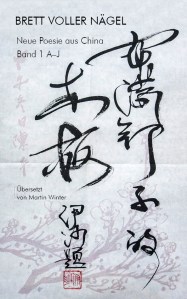 BRETT VOLLER NÄGEL
Neue Poesie aus China
Band 1 A–J
布满钉子的
木板
伊沙题
Übersetzt
von Martin Winter